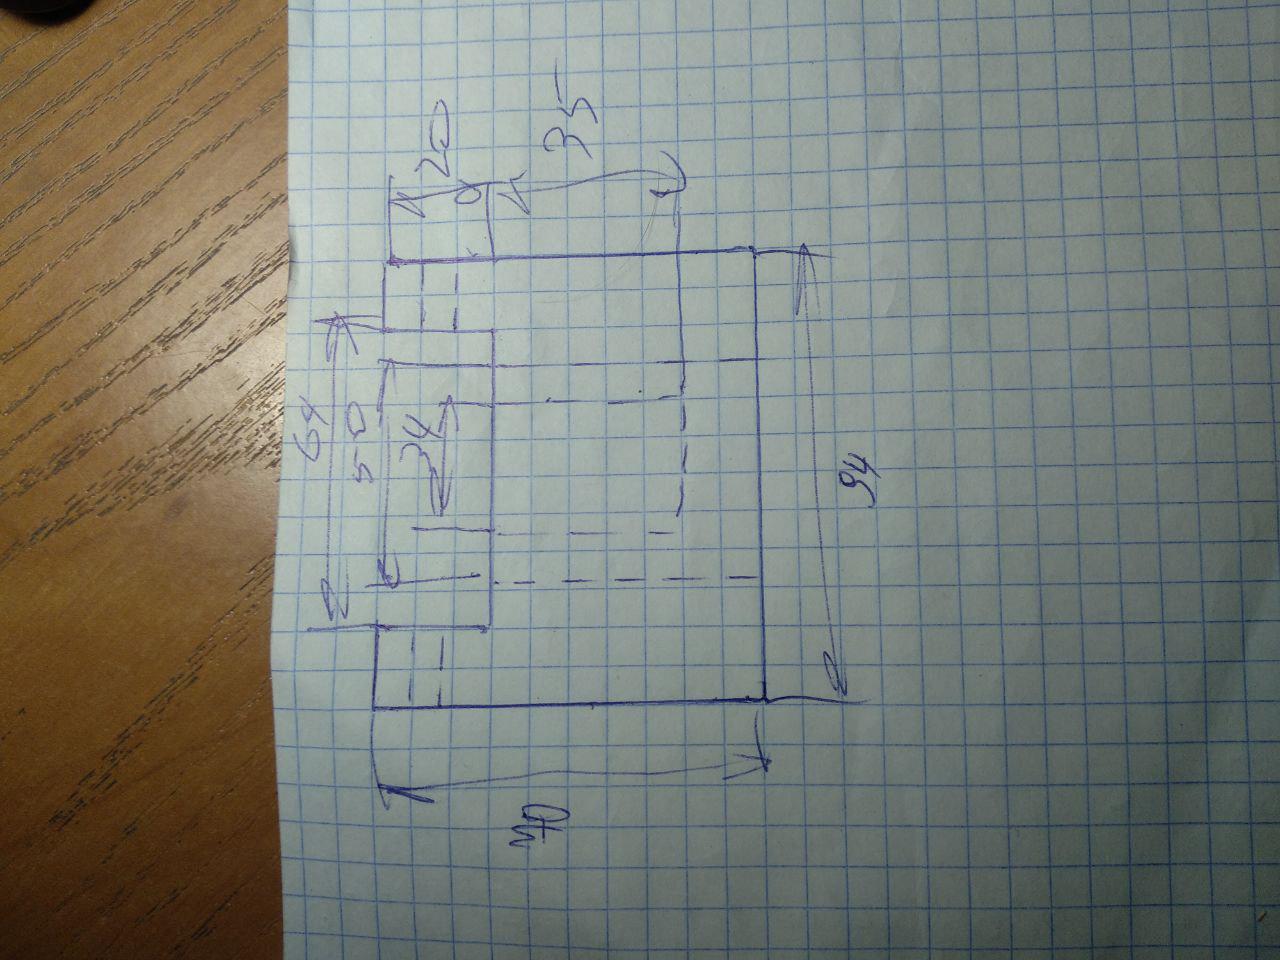 20
35
64
50
34
94
70